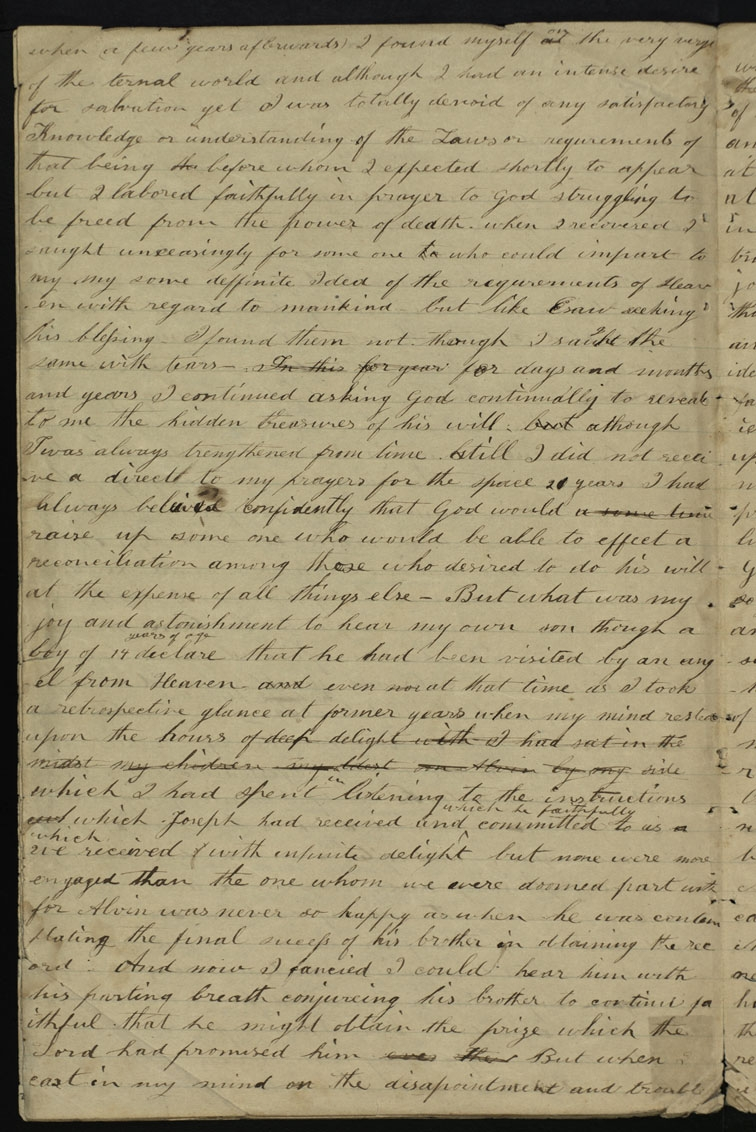 when a few years afterwards) I found myself on the very verge
of the ternal world and although I had an intense desire
for salvation yet I was totally devoid of any satisfactory
Knowledge or understanding of the Laws or requrements of
that being before whom I expected shortly to appear
but I labored faithfully in prayer to God struggling to
be freed from the power of death. when I recovered I
saught unceasingly for some one who could impart to
my my some deffinite Idea of the requrements of Heav
en with regard to mankind but like Esaw seeking
his blessing I found them not though I saught the
same with tears— In this for year for days and months
and years I continued asking God continually to reveal
to me the hidden treasures of his will but although
I was always trengthened from time Still I did not recei
ve a direct to my prayers for the space 20 years I had
always believed confidently that God would a some time
raise up some one who would be able to effect a
reconciliation among those who desired to do his will
at the expense of all things else— But what was my
joy and astonishment to hear my own son though a
years of age
boy of 14 declare that he had been visited by an ang
el from Heaven and even now at that time as I took
a retrospective glance at former years when my mind rested
upon the hours of deep delight with I had sat in the
midst my children my dear Alvin by my side
which I had spent in listening to the instructions
which he faithfully
which Joseph had received and committed to us a
which
we received with infinite delight but none were more
engaged than the one whom we were doomed part with
for Alvin was never so happy as when he was contem
plating the final success of his brother in obtaining the rec
ord. And now I fancied I could hear him with
his parting breath conjureing his brother to continue fa
ithful that he might obtain the prize which the
Lord had promised him But when
cast in my mind on the disapointment and trouble